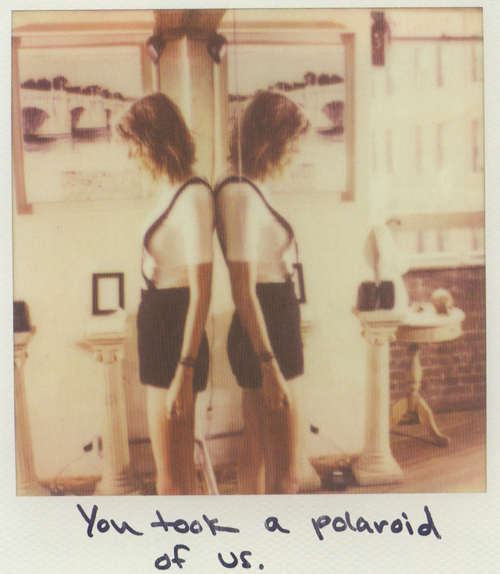 You took a polaroid
of us.